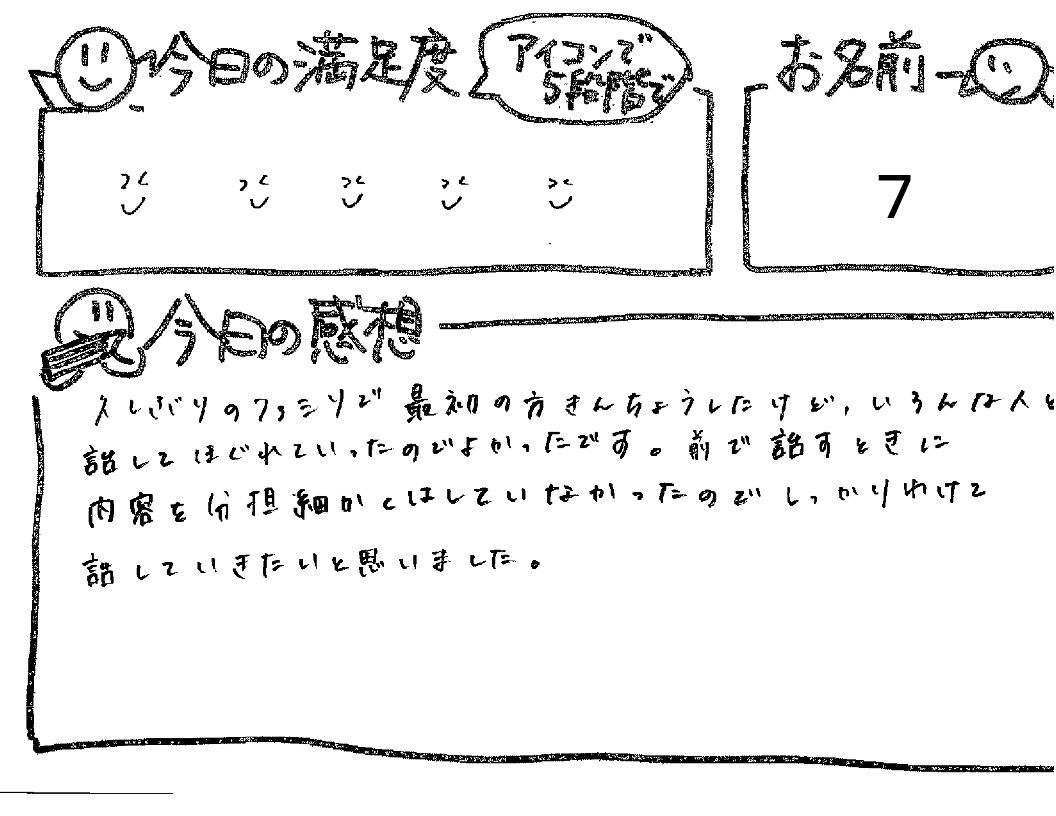 今日の満足度
アイコンで
5段階で
お名前
7
今日の感想
久しぶりのファシリで最初の方きんちょうしたけど、いろんな人と
話してほぐれていったのでよかったです。前で話すときに
内容を分担細かくはしていなかったのでしっかりわけて
話していきたいと思いました。